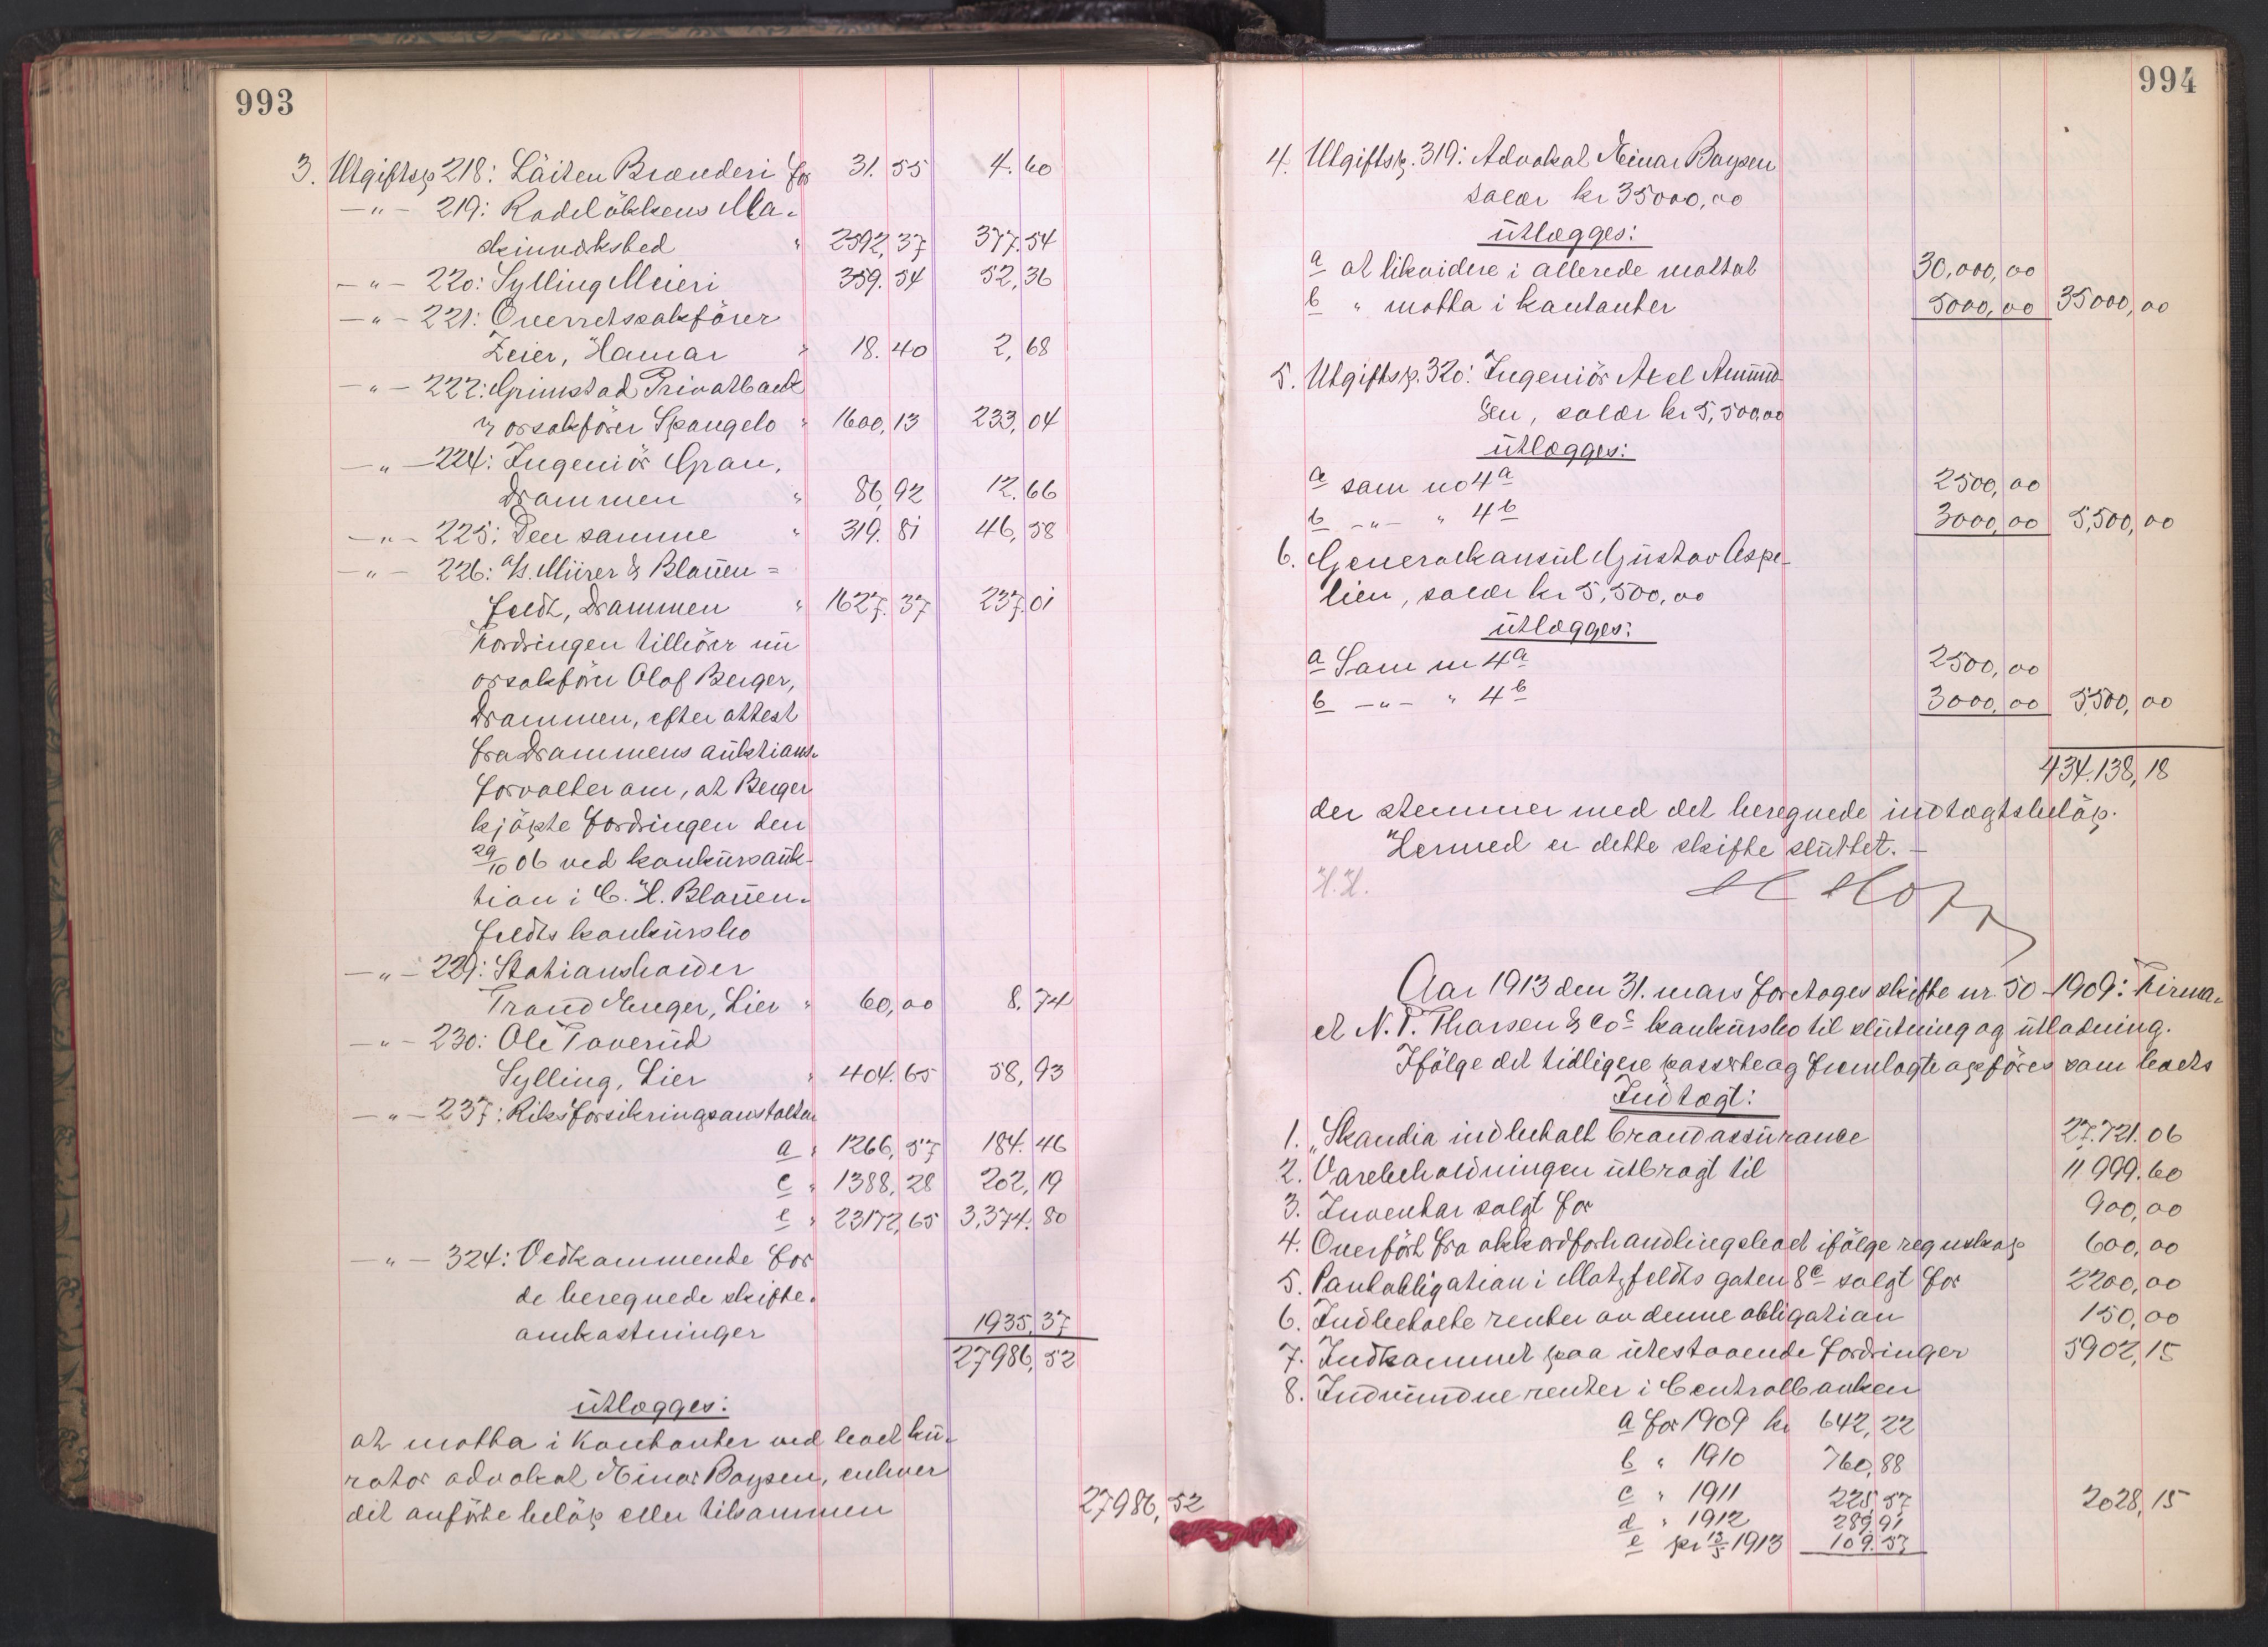 993
3. Utgiftsp 218: Löiten Brænderi for 31.55 4.60
—"— 219: Rodelökkens Ma-
skinverksted " 2592,37 377.54
—"— 220: Sylling Meieri 359.54 52,36
—"— 221: Overretssakförer
Zeier, Hamar " 18.40 2,68
—"— 222: Grimstad Privatbank
v/ orsakförer Spangelo " 1600,13 233,04
—"— 224: Ingeniör Gran,
Drammen " 86,92 12.66
—"— 225: Den samme " 319.81 46,58
—"— 226: A/s. Mürer & Blauen=
feldt, Drammen " 1627.37 237.01
Fordringen tilhörer nu
orsakförer Olaf Berger,
Drammen, efter attest
fra Drammens auktions-
forvalter om, at Berger
kjöpte fordringen den
29/10 06 ved konkursauk-
tion i C. H. Blauen-
feldts konkursbo
—"— 229: Stationsholder
Trond Enger, Lier " 60,00 8,74
—"— 230: Ole Toverud
Sylling, Lier " 404.65 58,93
—"— 237: Riksforsikringsanstalten
a " 1266,57 184.46
c " 1388,28 202,19
e " 23172,65 3,374.80
—"— 324: Vedkommende for
de beregnede skifte-
omkostninger 1935,37
27986,52
utlægges:
at motta i Kontanter ved boets ku-
rator advokat Einar Boysen, enhver
det anförte belöp eller tilsammen 27986,52
994
4. Utgiftsp. 319: Advokat Einar Boysen
salær kr 35000,00
utlægges:
a at likvidere i allerede mottat 30,000,00
b " motta i kontanter 5000,00 35000,00
5. Utgiftsp. 320: Ingeniör Axel Amund-
sen, salær kr 5,500,00
utlægges:
a som no 4a 2500,00
b —"— " 4b 3000,00 5,500,00
6. Generalkonsul Gustav Aspe-
lien, salær kr 5,500,00
utlægges:
a Som no 4a 2500,00
b —"— " 4b 3000,00 5,500,00
434.138,18
der stemmer med det beregnede indtægtsbelöp.
Hermed er dette skifte sluttet. —
H.H.
Aar 1913 den 31. mars foretoges skifte nr. 50-1909: Firma-
et N. T. Thorsen & Co's konkursbo til slutning og utlodning.
Ifölge det tidligere passerte og fremlagte opföres som boets
Indtægt:
1. "Skandia indbetalt brandassurance 27.721.06
2. Varebeholdningen utbragt til 11 999.60
3. Inventar solgt for 900,00
4. Overfört fra akkordforhandlingsboet ifölge regnskap 600,00
5. Pantobligation i Motzfeldts gaten 8c solgt for 2200,00
6. Indbetalte renter av denne obligation 150,00
7. Indkommet paa utestaaende fordringer 5902,15
8. Indvundne renter i Centralbanken
a for 1909 kr 642,22
b " 1910 760,88
c " 1911 225,57
d " 1912 289,91
e pr 13/3 1913 109.57 2028,15